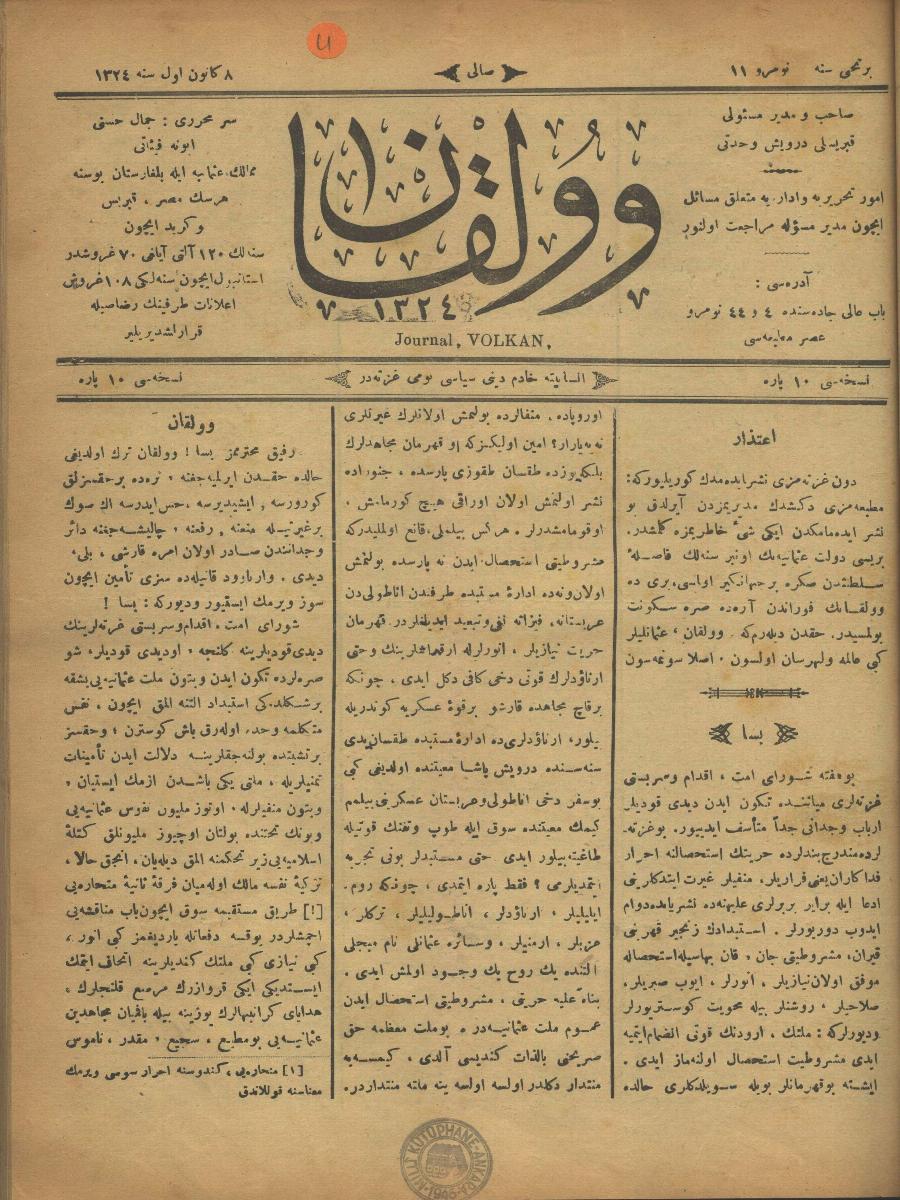 برنجی سنه نومرو ۱۱
صالی
۸ كانون اول سنه ۱۳۲٤
صاحب و مدیر مسئولی
قبریسلی درویش وحدتی
امور تحریریه وادار.یه متعلق مسائل
ایچون مدیر مسؤله مراجعت اولنور
آدره‌سی :
باب عالی جاده‌سنده ٤ و ٤٤ نومرو
عصر مطبعه‌سی
وولقان
۱۳۲٤
Journal, VOLKAN,
سر محرری : جمال حسنی
ابونه فیئاتی
ممالك عثمانیه ایله بلغارستان بوسنه
هرسك مصر ، قبریس
و كرید ایچون
سنه‌لك ۱۲۰ آلتی آیلغی ۷۰ غروشدر
استانبول ایچون سنه‌لكی ۱۰۸ غروش
اعلانات طرفینك رضاسیله
قرارلشدیریلیر
نسخه‌سی ۱۰ پاره
انسانیته خادم دینی سیاسی یومی غزته‌در
نسخه‌سی ۱۰ پاره
اعتذار
دون غزته‌مزی نشر ایده‌مدك كوریلیوركه:
مطبعه‌مزی دكشدك مدیریمزدن آیرلدق بو
نشر ایده‌مامكدن ایكی شیٔ خاطریمزه كلمشدر.
بریسی دولت عثمانیه‌نك اونبر سنه‌لك فاصلهٔ
سلطنتدن صكره برجهانكیر اولاسی، بری ده
وولقانك فوراندن آره‌ده صره سكونت
بولمسیدر. حقدن دیلرم‌كه وولقان ، عثمانلیلر
كبی عالمه ولهرسان اولسون . اصلا سونمه‌سون
بسا
بوهفته شورای امت ، اقدام و سربستی
غزته‌لری میاننده تكون ایدن دیدی قودیلر
ارباب وجدانی جداً متأسف ایدییور. بوغزته.
لرده مندرج بندلرده حریتك استحصالنه احرار
فداكاران یعنی فراریلر، منفیلر غیرت ایتدكلرینی
ادعا ایله برابر بربرلری علیهنه‌ده نشریامده‌دوام
ایدوب دوریورلر . استبدادك زنجیر قهرینی
قیران، مشروطیتی جان ، قان بهاسیله استحصاله
موفق اولان نیازیلر ، انورلر ، ایوب صبریلر،
صلاحیلر ، روشنلر بیله محویت كوستریورلر
ودیورلركه : ملتك ، اردونك قوتی انضمام ایتمیه
ایدی مشروطیت استحصال اولنه‌ماز ایدی .
ایشته بوقهرمانلر بویله سویلدكلری حالده
اوروپاده . منفالرده بولنمش اولانلرك غیرتلری
نه‌یه یارار؟ امین اولیكزكه او قهرمان مجاهدلرك
بلكه یوزده طقسان طقوزی پارسده ، جنوراده
نشر اولنمش اولان اوراقی هیچ كورمامش .
اوقومامشدرلر . هركس بیلملی، قانع اولملیدركه
مشروطیتی استحصال ایدن نه پارسده بولنمش
اولان ونه‌ده ادارهٔ مستبده طرفندن اناطولی‌دن
عربستانه، فیزانه نفی وتبعید ایدیلنلردر. قهرمان
حریت نیازیلر ، انورلرله ارقداشلرینك وحتی
ارناؤدلرك قوتی دخی كافی دكل ایدی ، چونكه
برقاچ مجاهده قارشو برقوهٔ عسكریه كوندریله
بیلور، ارناؤدلری‌ده ادارهٔ مستبده طقسان یدی
سنه‌سنده درویش پاشا معیتنده اولدینی كبی
بوسفر دخی اناطولی وعربستان عسكرینی بیلمم
كیمك معیتنده سوق ایله طوپ وتفنك قوتیله
طاغیته‌بیلور ایدی حتی مستبدلر بونی تجربه
ایتمدیلرمی ؟ فقط پاره ایتمدی ، چونكه روم.
ایلیلیلر ، ارناؤدلر ، اناطولیلیلر ، تركلر ،
عربلر ، ارمنیلر ، وسائره عثمانلی نام مبجلی
آلتنده یك روح یك وجود اولمش ایدی .
بناءً علیه حریتی ، مشروطیتی استحصال ایدن
عموم ملت عثمانیه‌در. بوملت معظمه حق
صریحنی بالذات كندیسی آلدی ، كیمسه‌یه
منتدار دكلدر اولسه اولسه ینه ملته منتداردر.
وولقان
رفیق محترممز بسا ! وولقان ترك اولدینی
حالده حقدن ایرلمیه‌جغنه ، نره‌ده برحقسزلق
كورورسه ، ایشیدیرسه ، حس ایدرسه الك صوك
برغیرتیله منعنه ، رفعنه ، چالیشه‌جغنه دائر
وجدانندن صادر اولان امره قارشی ، بلی .
دیدی . وارناوود قانیله‌ده سزی تأمین ایچون
سوز ویرمك ایستیور ودیوركه : بسا !
شورای امت ، اقدام وسربستی غزته‌لرینك
دیدی قودیلرینه كلنجه ، اودیدی قودیلر، شو
صره‌لرده تكون ایدن وبتون ملت عثمانیه‌یی بشقه
برشكلده‌كی استبداد آلتنه المق ایچون ، نفس
متكلمه وحده اوله‌رق باش كوسترن ، وحقسز
برتشبثده بولنه‌جقلرینه دلالت ایدن تأمینات
تمنیلریله ، ملتی یكی باشدن ازمك ایستیان ،
وبتون منفیلرله . اوتوز ملیون نفوس عثمانیه‌یی
وبونك تحتنده بولنان اوچیوز ملیونلق كتلهٔ
اسلامیه‌یی زیر تحكمنه المق دیله‌یان، انجق حالا ،
تزكیهٔ نفسه مالك اوله‌میان فرقهٔ ثانیهٔ متحاره‌یی
[!] طریق مستقیمه سوق ایچون باب مناقشه‌یی
احمشلردر یوقسه دفعاتله یاردیغمز كبی انور ،
كبی نیازی كبی ملتك كندیلرینه اتحاف ایتمك
ایستدیكی ایكی قروازرك مرصع قلنجلرك ،
هدایای كرانبهالرك یوزینه بیله باقمیان مجاهدین
عثمانیه‌یی بو مطیع ، سجیع ، مقدر ، ناموس
[۱] متحاره‌یی ، كندوسنه احرار سوسی ویرمك
معناسنه قوللاندق
MİLLİ KÜTÜPHANE-ANKARA
1946